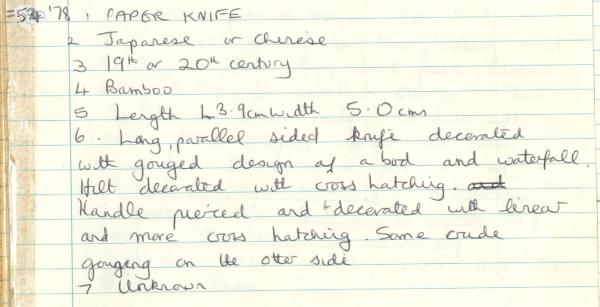 =574 '78 1 PAPER KNIFE
2 Japanese or Chinese
3 19th or 20th century
4 Bamboo
5 Length 43.9cm width 5.0 cms
6. Long, parallel sided knife decorated
with gouged design of a bird and waterfall.
Hilt decorated with cross hatching.
Handle pierced and decorated with linear
and more cross hatching. Same crude
gouging on the other side
7 Unknown